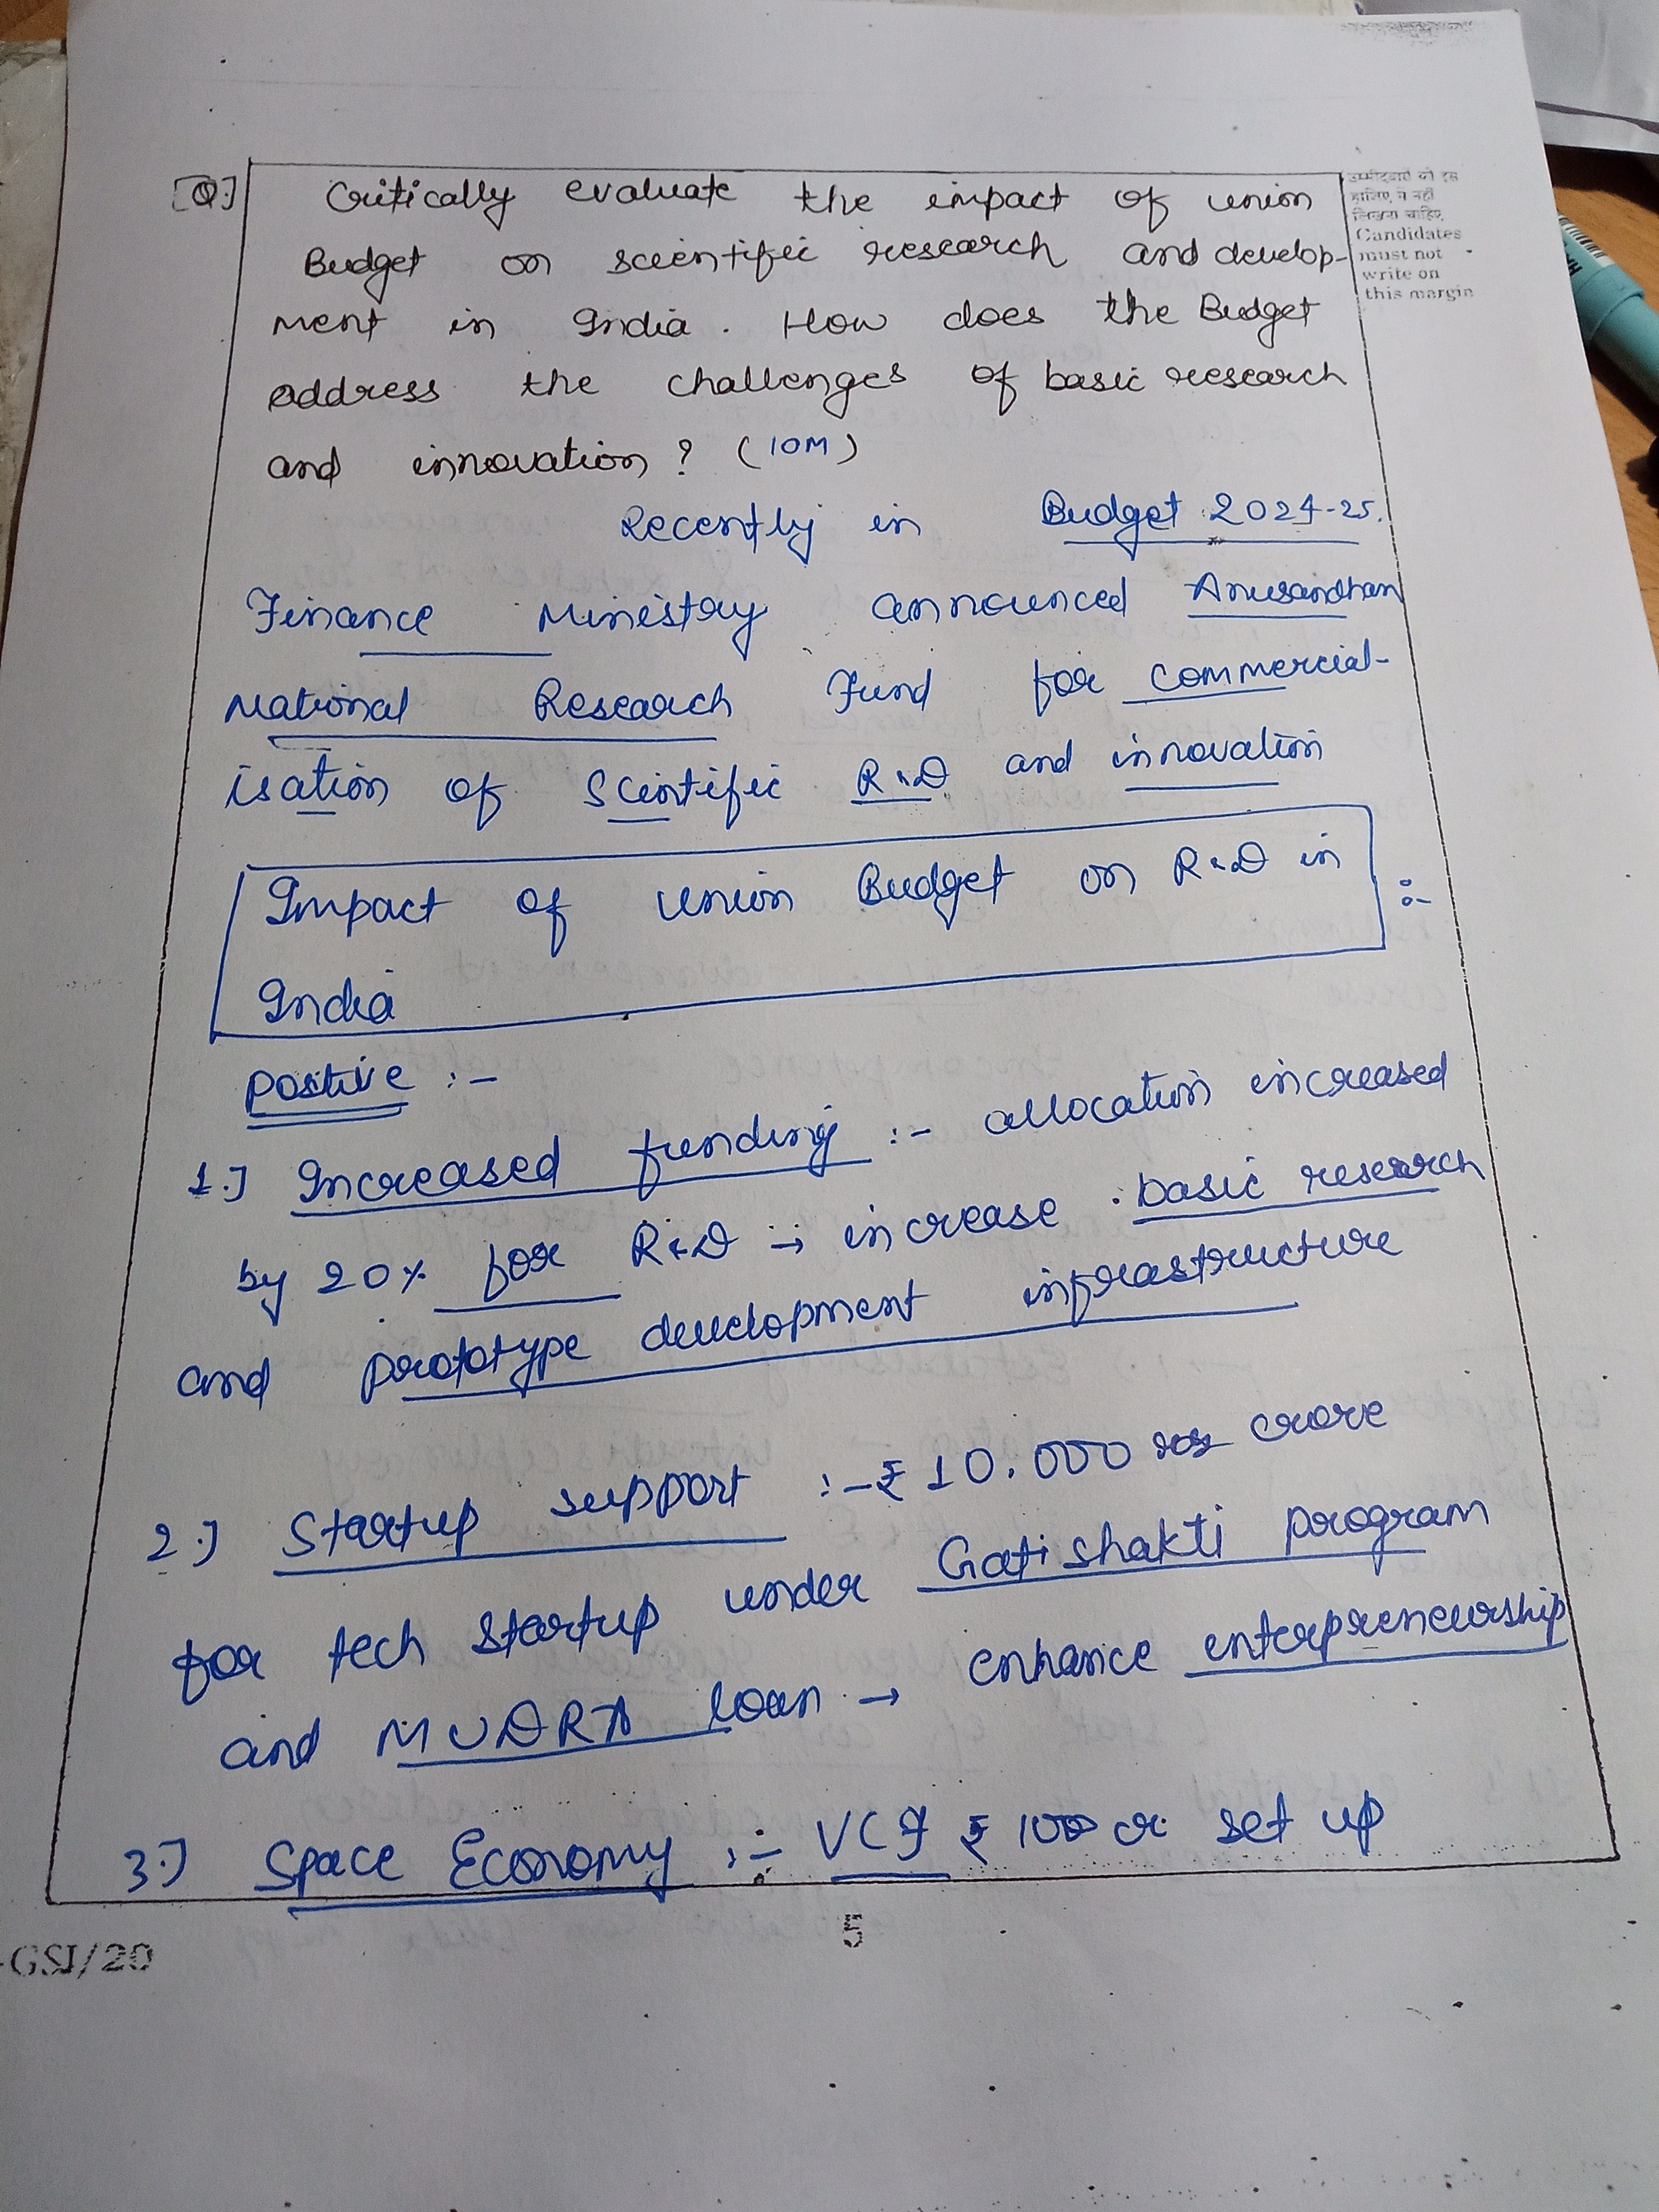 [Q.] Critically evaluate the impact of union
Budget on scientific research and develop-
ment in India. How does the Budget
address the challenges of basic research
and innovation? (10M)
उम्मीदवारों को इस
हाशिए में नहीं
लिखना चाहिए
Candidates
must not
write on
this margin
Recently in Budget 2024-25.
Finance Ministry announced Anusandhan
National Research Fund for commercial-
isation of Scientific R&D and innovation
Impact of Union Budget on R&D in :-
India
Positive :-
1.] Increased funding :- allocation increased
by 20% for R&D → increase basic research
and prototype development infrastructure
2.] Startup support :- ₹ 10.000 crore
for tech startup under Gati shakti program
and MUDRA loan → enhance enterpreneurship
3.] Space Economy :- VCF ₹ 1000 cr set up
5
-GSI/20